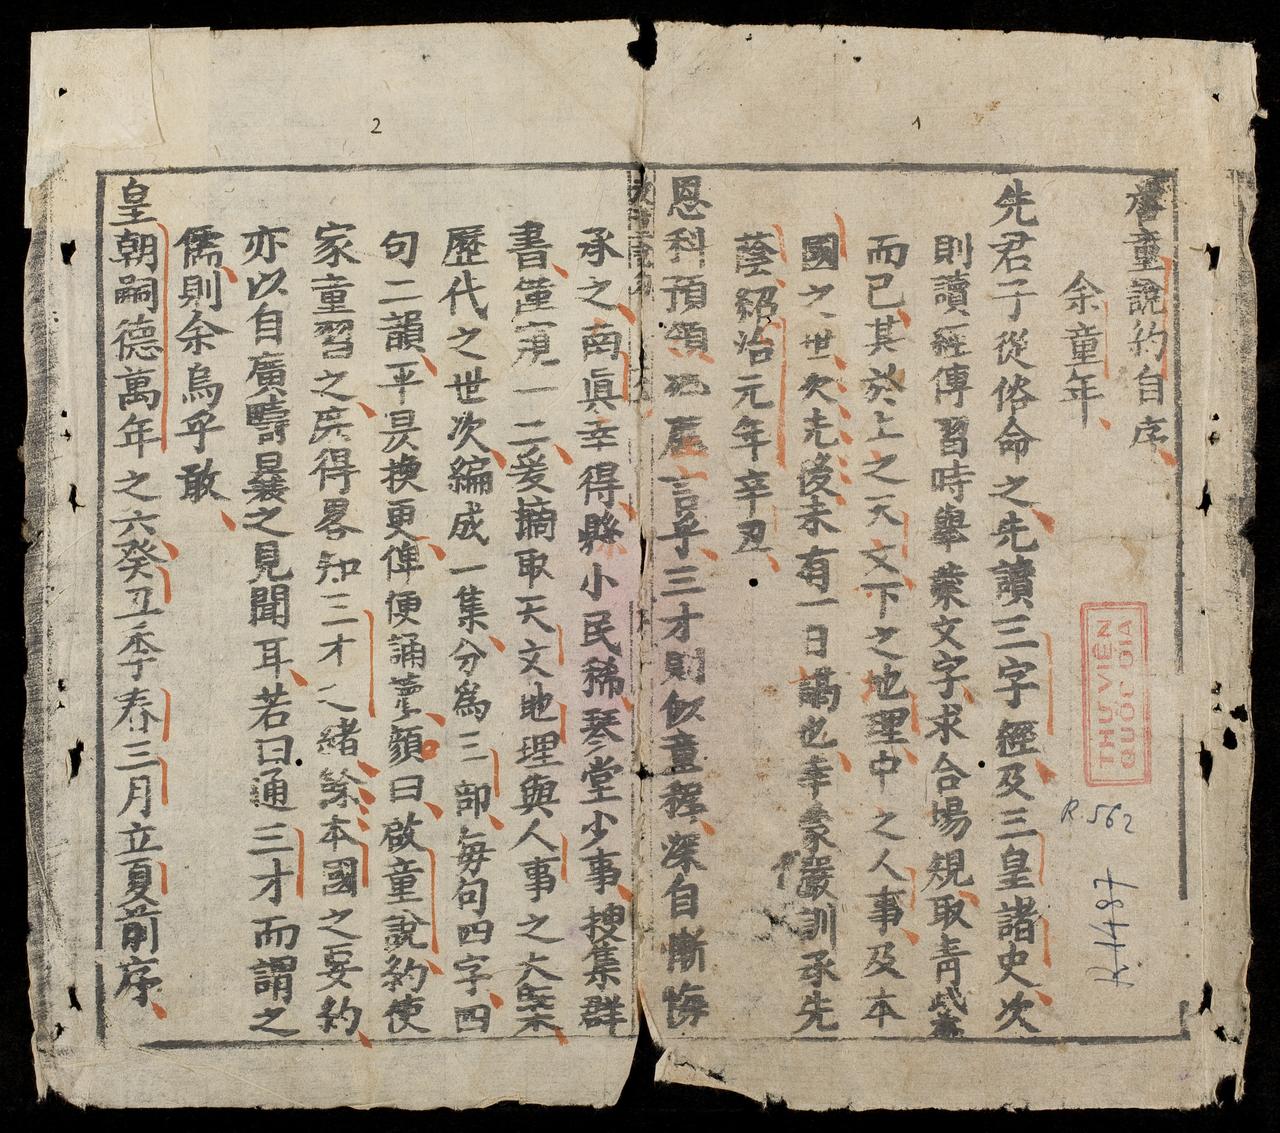 1
啓童說約自序
余童年
先君子從俗命之先讀三字經及三皇諸史次
則讀經傳習時舉業文字求合場規取青紫
而已其於上之天文下之地理中之人事及本
國之世次先後未有一日講也幸蒙嚴訓承先
蔭紹治元年辛丑
恩科預領鄉薦言乎三才則似童稚深自慚悔
承之南真幸得縣小民稀琴堂少事搜集群
書僅窺一二爰摘取天文地理與人事之大槩
歷代之世次編成一集分為三部每句四字四
句二韻平昃換更俾便誦讀顏曰啟童說約使
家童習之庶得畧知三才之緒餘本國之要約
亦以自廣疇曩之見聞耳若曰通三才而謂之
儒則余烏乎敢
皇朝嗣德萬年之六癸丑季春三月立夏前序
2
THƯ VIỆN
QUỐC GIA
R.562
R.1487